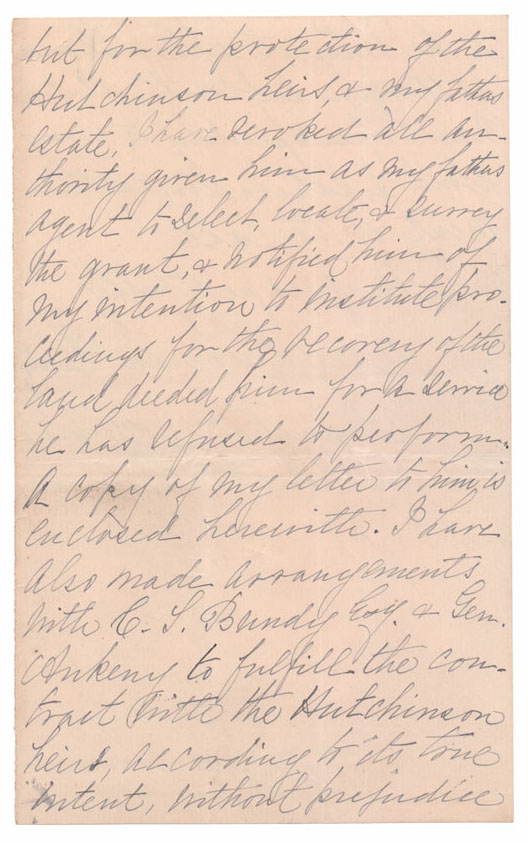 but for the protection of the
Hutchinson heirs, & my fathers
estate, I have revoked all au-
thority given him as my fathers
agent to select, locate, & survey
the grant, & notified him of
my intention to institute pro-
ceedings for the recovery of the
land deeded him for a service
he has refused to perform.
A copy of my letter to him is
enclosed herewith. I have
also made arrangements
with C. S. Bundy Esq. & Gen.
Ankeny to fulfill the con-
tract with the Hutchinson
heirs, according to its true
intent, without prejudice